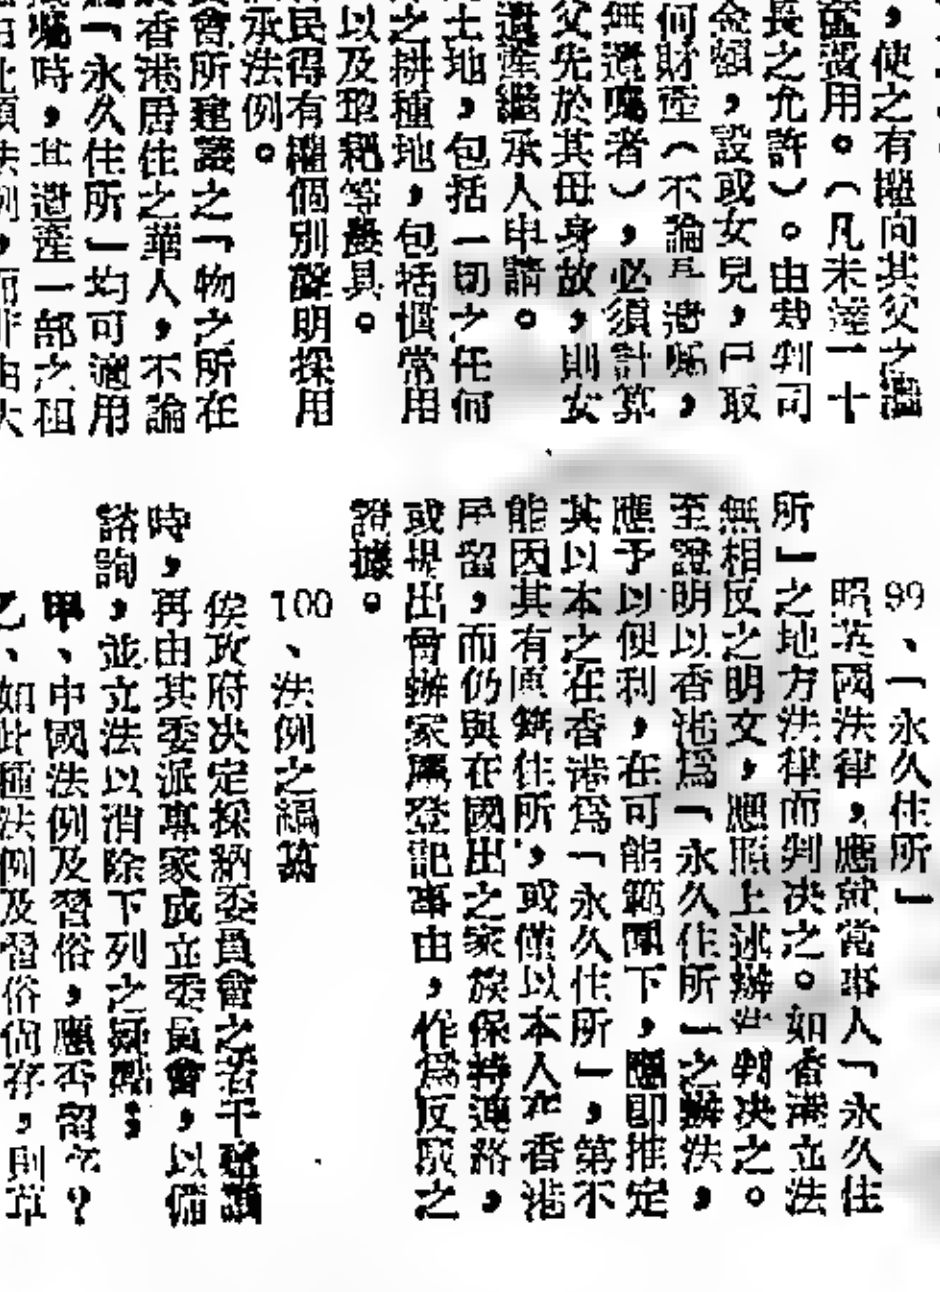 ，使之有權向其父之遺
產費用。（凡未達二十
長之允許）。由裁判司
金額，設或女兒，已取
何財產（不論是遺囑，
無遺囑者），必須計算
父先於其母身故，則女
遺產繼承人申請。
土地，包括一切之任何
之耕種地，包括慣常用
以及犂耙等農具。
民得有權個別聲明採用
承法例。
會所建議之「物之所在
香港居住之華人，不論
「永久住所」均可適用
囑時，其遺產一部之
99、「永久住所」
照英國法律，應就當事人「永久住
所」之地方法律而判决之。如香港立法
無相反之明文，應照上述辦法判决之。
至證明以香港爲「永久住所」之辦法，
應予以便利，在可能範圍下，隨即推定
其以本之在香港爲「永久住所」，第不
能因其有原籍住所，或僅以本人在香港
居留，而仍與在國出之家族保持連絡，
或提出曾辦家屬登記事由，作爲反駁之
證據。
100、法例之編纂
俟政府决定採納委員會之若干建議
時，再由其委派專家成立委員會，以備
諮詢，並立法以消除下列之疑點；
甲、中國法例及習俗，應否留存？
乙、如此種法例及習俗尙存，則